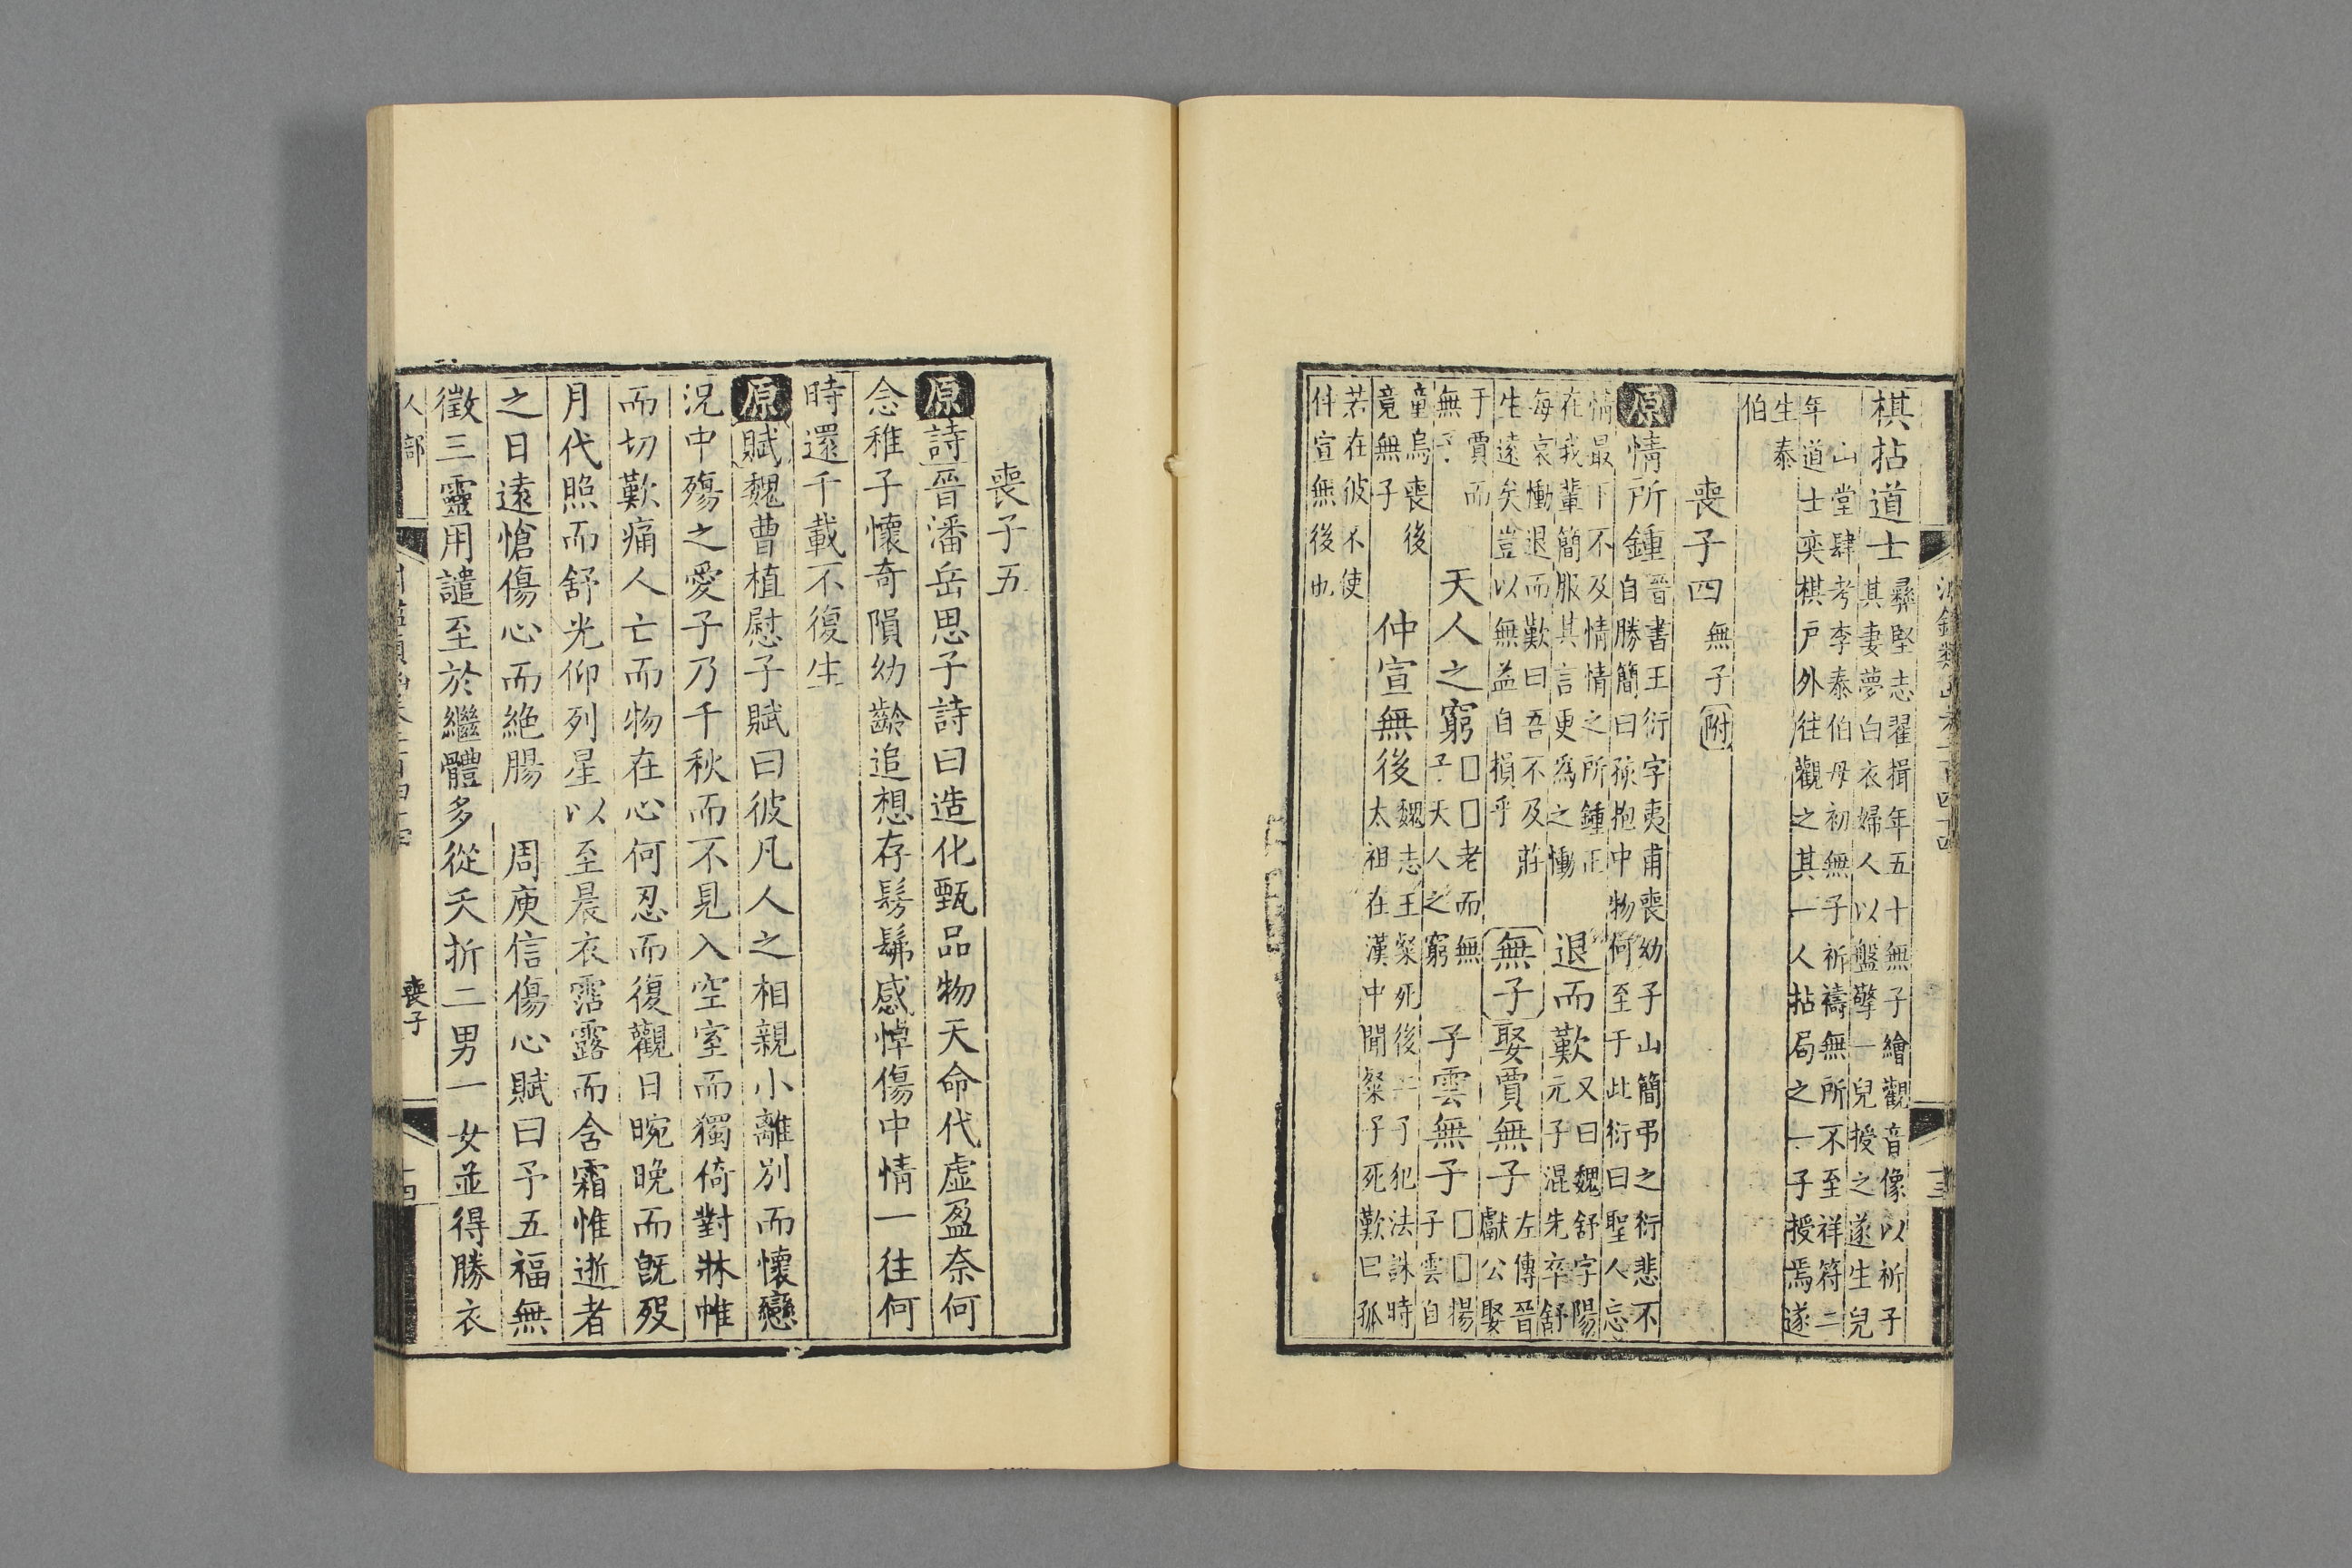 棋拈道士
彝堅志翟揖年五十無子繪觀音像以祈子
其妻夢白衣婦人以盤擎一兒授之遂生兒
山堂肆考李泰伯母初無子祈禱無所不至祥符二
年道士奕棋戶外往觀之其一人拈局之一子授焉遂
生泰
伯
喪子四 無子附
原情所鍾
晉書王衍字夷甫喪幼子山簡弔之衍悲不
自勝簡曰孩抱中物何至于此衍曰聖人忘
情最下不及情情之所鍾正
在我輩簡服其言更為之慟
退而歎
又曰魏舒字陽
元子混先卒舒
每哀慟退而歎曰吾不及莊
生遠矣豈以無益自損乎
無子 娶賈無子
左傳晉
獻公娶
于賈而
無子
天人之窮
□□老而無
子天人之窮
子雲無子
□□揚
子雲自
童烏喪後
竟無子
仲宣無後
魏志王粲死後二子犯法誅時
太祖在漢中聞粲子死歎曰孤
若在彼不使
仲宣無後也
十三
喪子五
原詩晉潘岳思子詩曰造化甄品物天命代虛盈奈何
念稚子懷奇隕幼齡追想存髣髴感悼傷中情一往何
時還千載不復生
原賦魏曹植慰子賦曰彼凡人之相親小離別而懷戀
況中殤之愛子乃千秋而不見入空室而獨倚對牀帷
而切歎痛人亡而物在心何忍而復觀日晼晚而旣歿
月代照而舒光仰列星以至晨衣霑露而含霜惟逝者
之日遠愴傷心而絶腸 周庾信傷心賦曰予五福無
徵三靈用譴至於繼體多從夭折二男一女並得勝衣
人部
喪子
十四